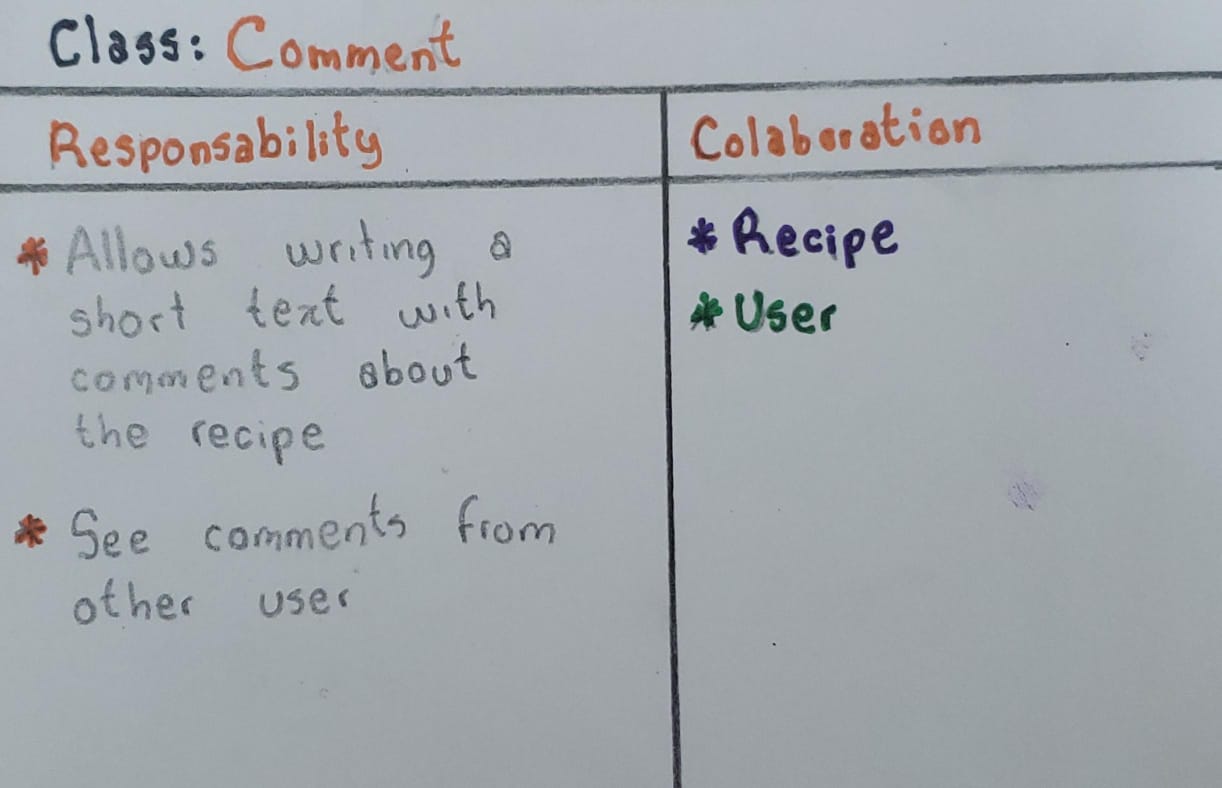 Class: Comment
Responsability
Colaboration
* Allows writing a
short text with
comments about
the recipe
* See comments from
other user
* Recipe
* User